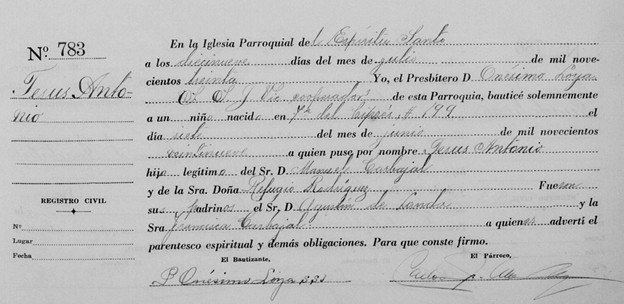 Nº 783
Jesus Anto-
nio
REGISTRO CIVIL
Nº
Lugar
Fecha
En la Iglesia Parroquial del Espíritu Santo
a los diecinueve días del mes de julio de mil nove-
cientos treinta Yo, el Presbítero D. Onésimo Loza
S. J. Vic. cooperador de esta Parroquia, bauticé solemnemente
a un niño nacido en 7ª del Ciprés # 199 el
día siete del mes de junio de mil novecientos
veintinueve a quien puse por nombre: Jesus Antonio
hijo legítimo del Sr. D. Manuel Carbajal
y de la Sra. Doña Refugio Rodríguez Fueron
sus padrinos el Sr. D. Agustín de y la
Sra. Francisca Carbajal a quienes advertí el
parentesco espiritual y demás obligaciones. Para que conste firmo.
El Bautizante, El Párroco,
P. Onésimo Loza